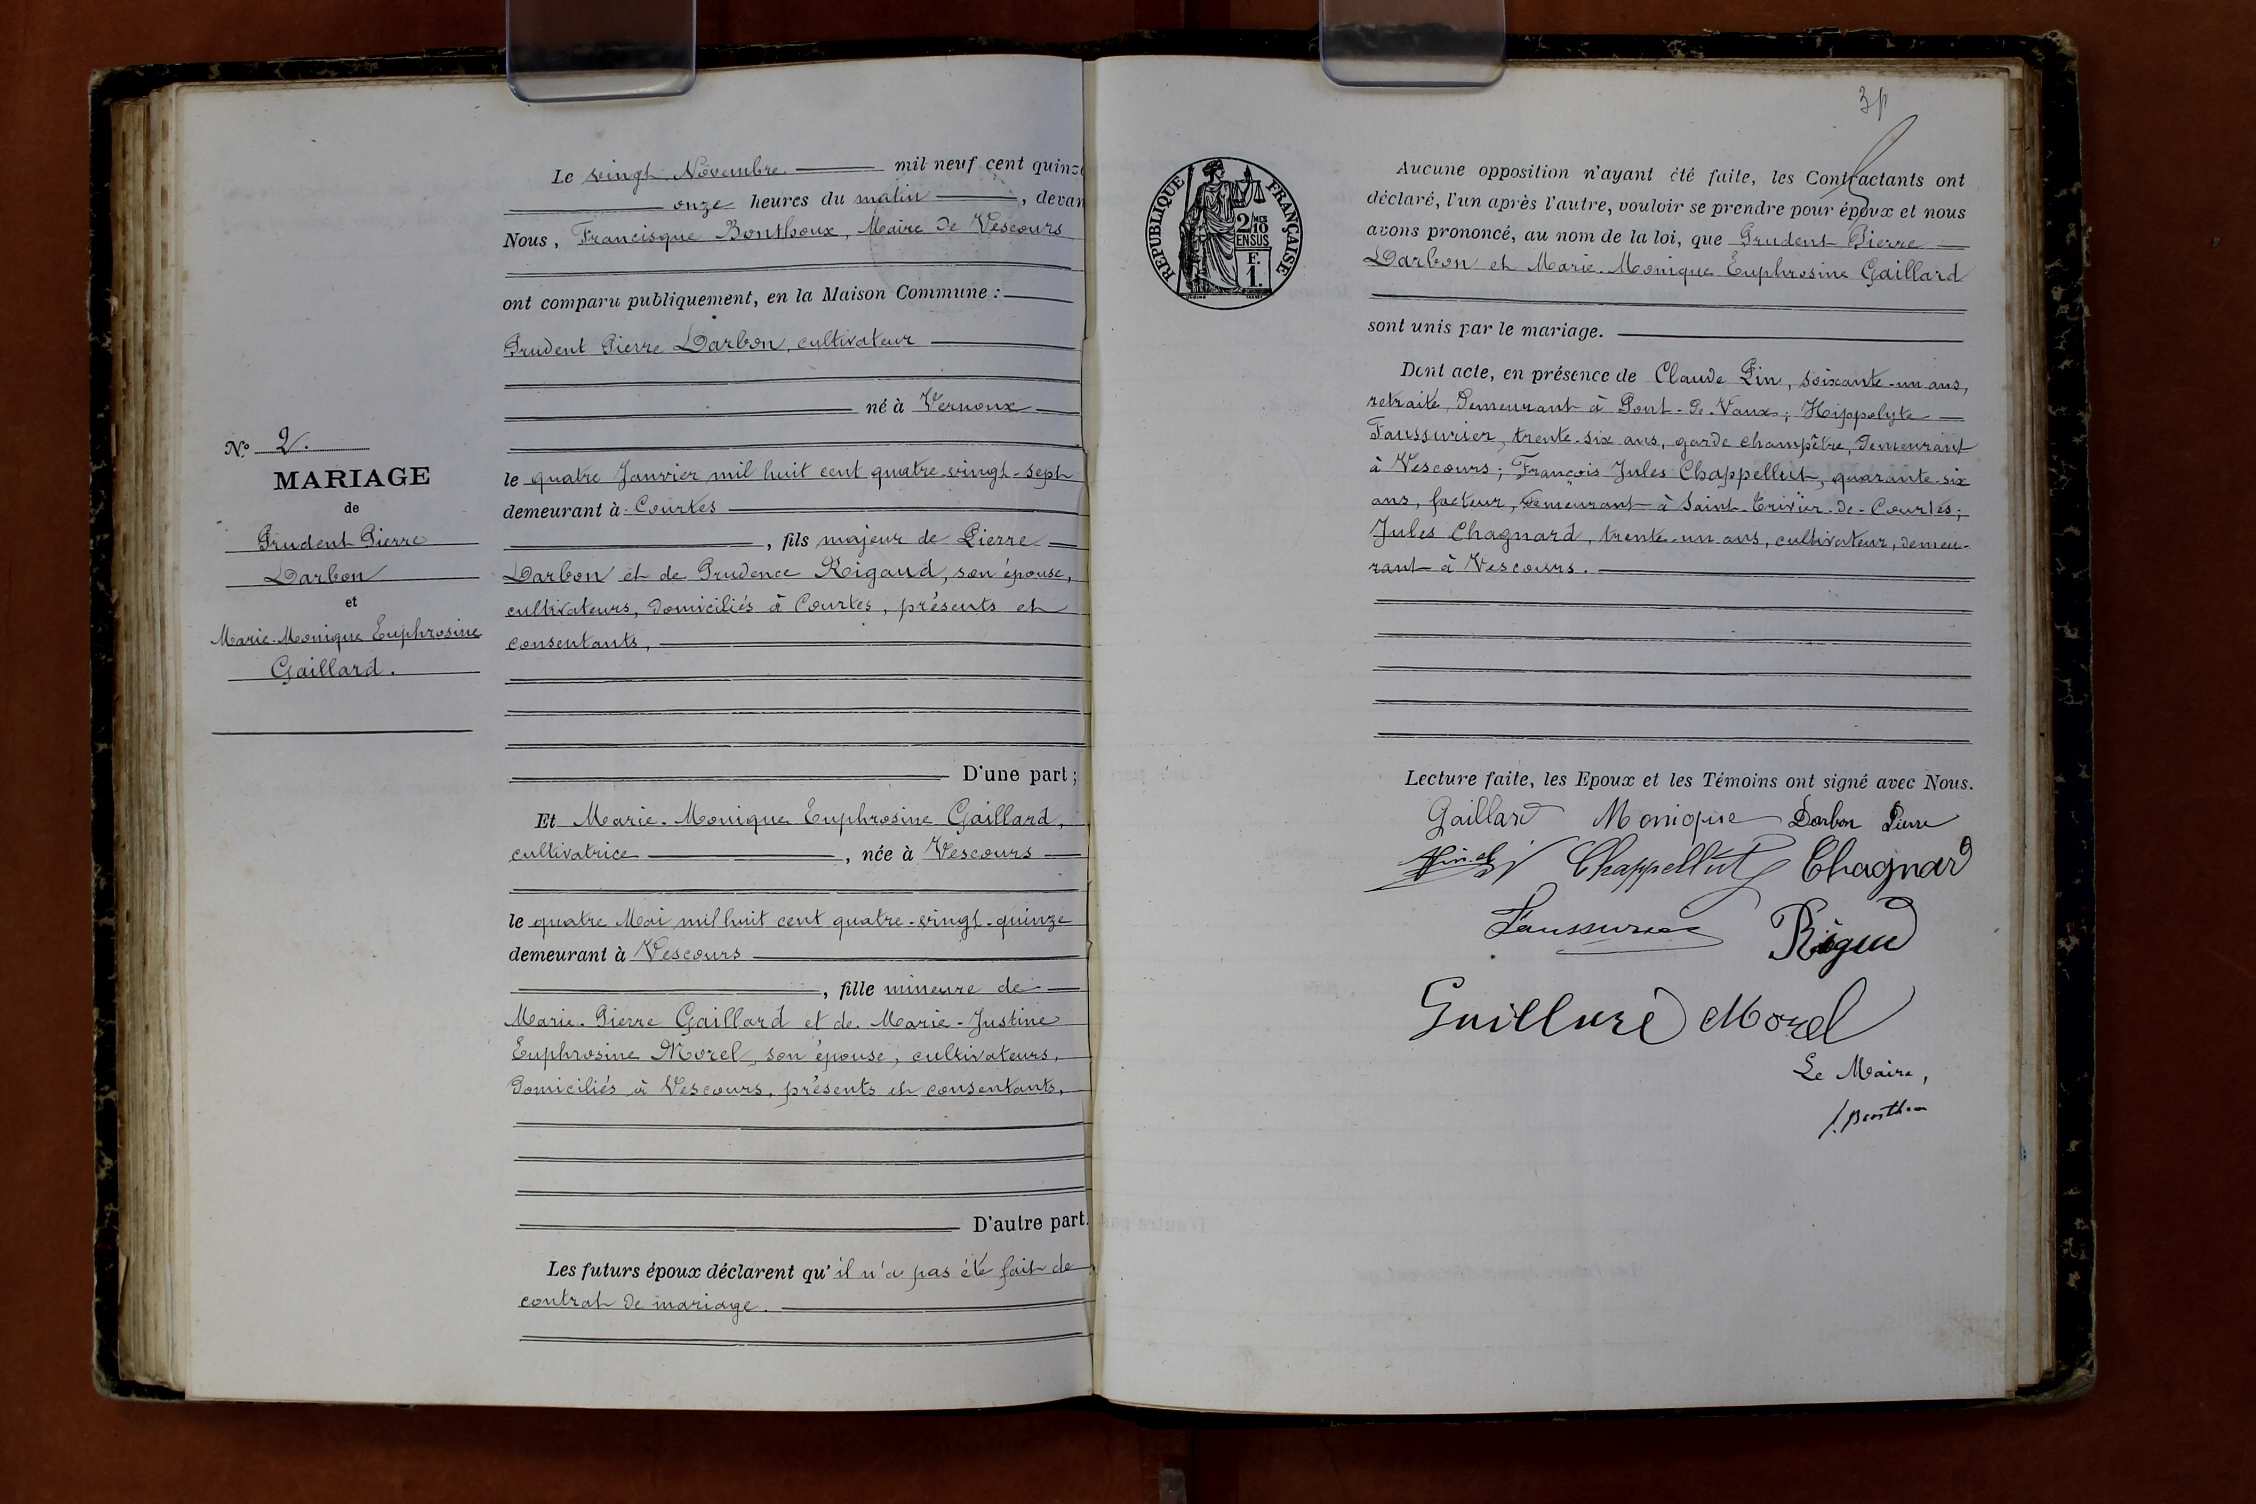 Le vingt Novembre mil neuf cent quinze
onze heures du matin, devan
Nous, Francisque Bonthoux, Maire de Vescours
ont comparu publiquement, en la Maison Commune :
Prudent Pierre Darbon, cultivateur
né à Vernoux
le quatre Janvier mil huit cent quatre-vingt-sept
demeurant à Courtes
, fils majeur de Pierre
Darbon et de Prudence Rigaud, son épouse,
cultivateurs, domiciliés à Courtes, présents et
consentants,
D'une part ;
Et Marie-Monique Euphrosine Gaillard,
cultivatrice, née à Vescours
le quatre Mai mil huit cent quatre-vingt-quinze
demeurant à Vescours
, fille mineure de
Marie-Pierre Gaillard et de Marie-Justine
Euphrosine Morel, son épouse, cultivateurs,
domiciliés à Vescours, présents et consentants,
D'autre part.
Les futurs époux déclarent qu'il n'a pas été fait de
contrat de mariage.
N° 2.
MARIAGE
de
Prudent Pierre
Darbon
et
Marie-Monique Euphrosine
Gaillard.
RÉPUBLIQUE FRANÇAISE
2/10
EN SUS
F.
1.
Aucune opposition n'ayant été faite, les Contractants ont
déclaré, l'un après l'autre, vouloir se prendre pour époux et nous
avons prononcé, au nom de la loi, que Prudent Pierre
Darbon et Marie-Monique Euphrosine Gaillard
sont unis par le mariage.
Dont acte, en présence de Claude Pin, soixante-un ans,
retraité, demeurant à Pont-de-Vaux ; Hippolyte
Faussurier, trente-six ans, garde champêtre, demeurant
à Vescours ; François Jules Chappellut, quarante-six
ans, facteur, demeurant à Saint-Trivier-de-Courtes ;
Jules Chagnard, trente-un ans, cultivateur, demeu-
rant à Vescours.
Lecture faite, les Epoux et les Témoins ont signé avec Nous.
Gaillard Monique Darbon Pierre
Chappellut Chagnard
Faussurier Rigaud
Gaillard Morel
Le Maire,